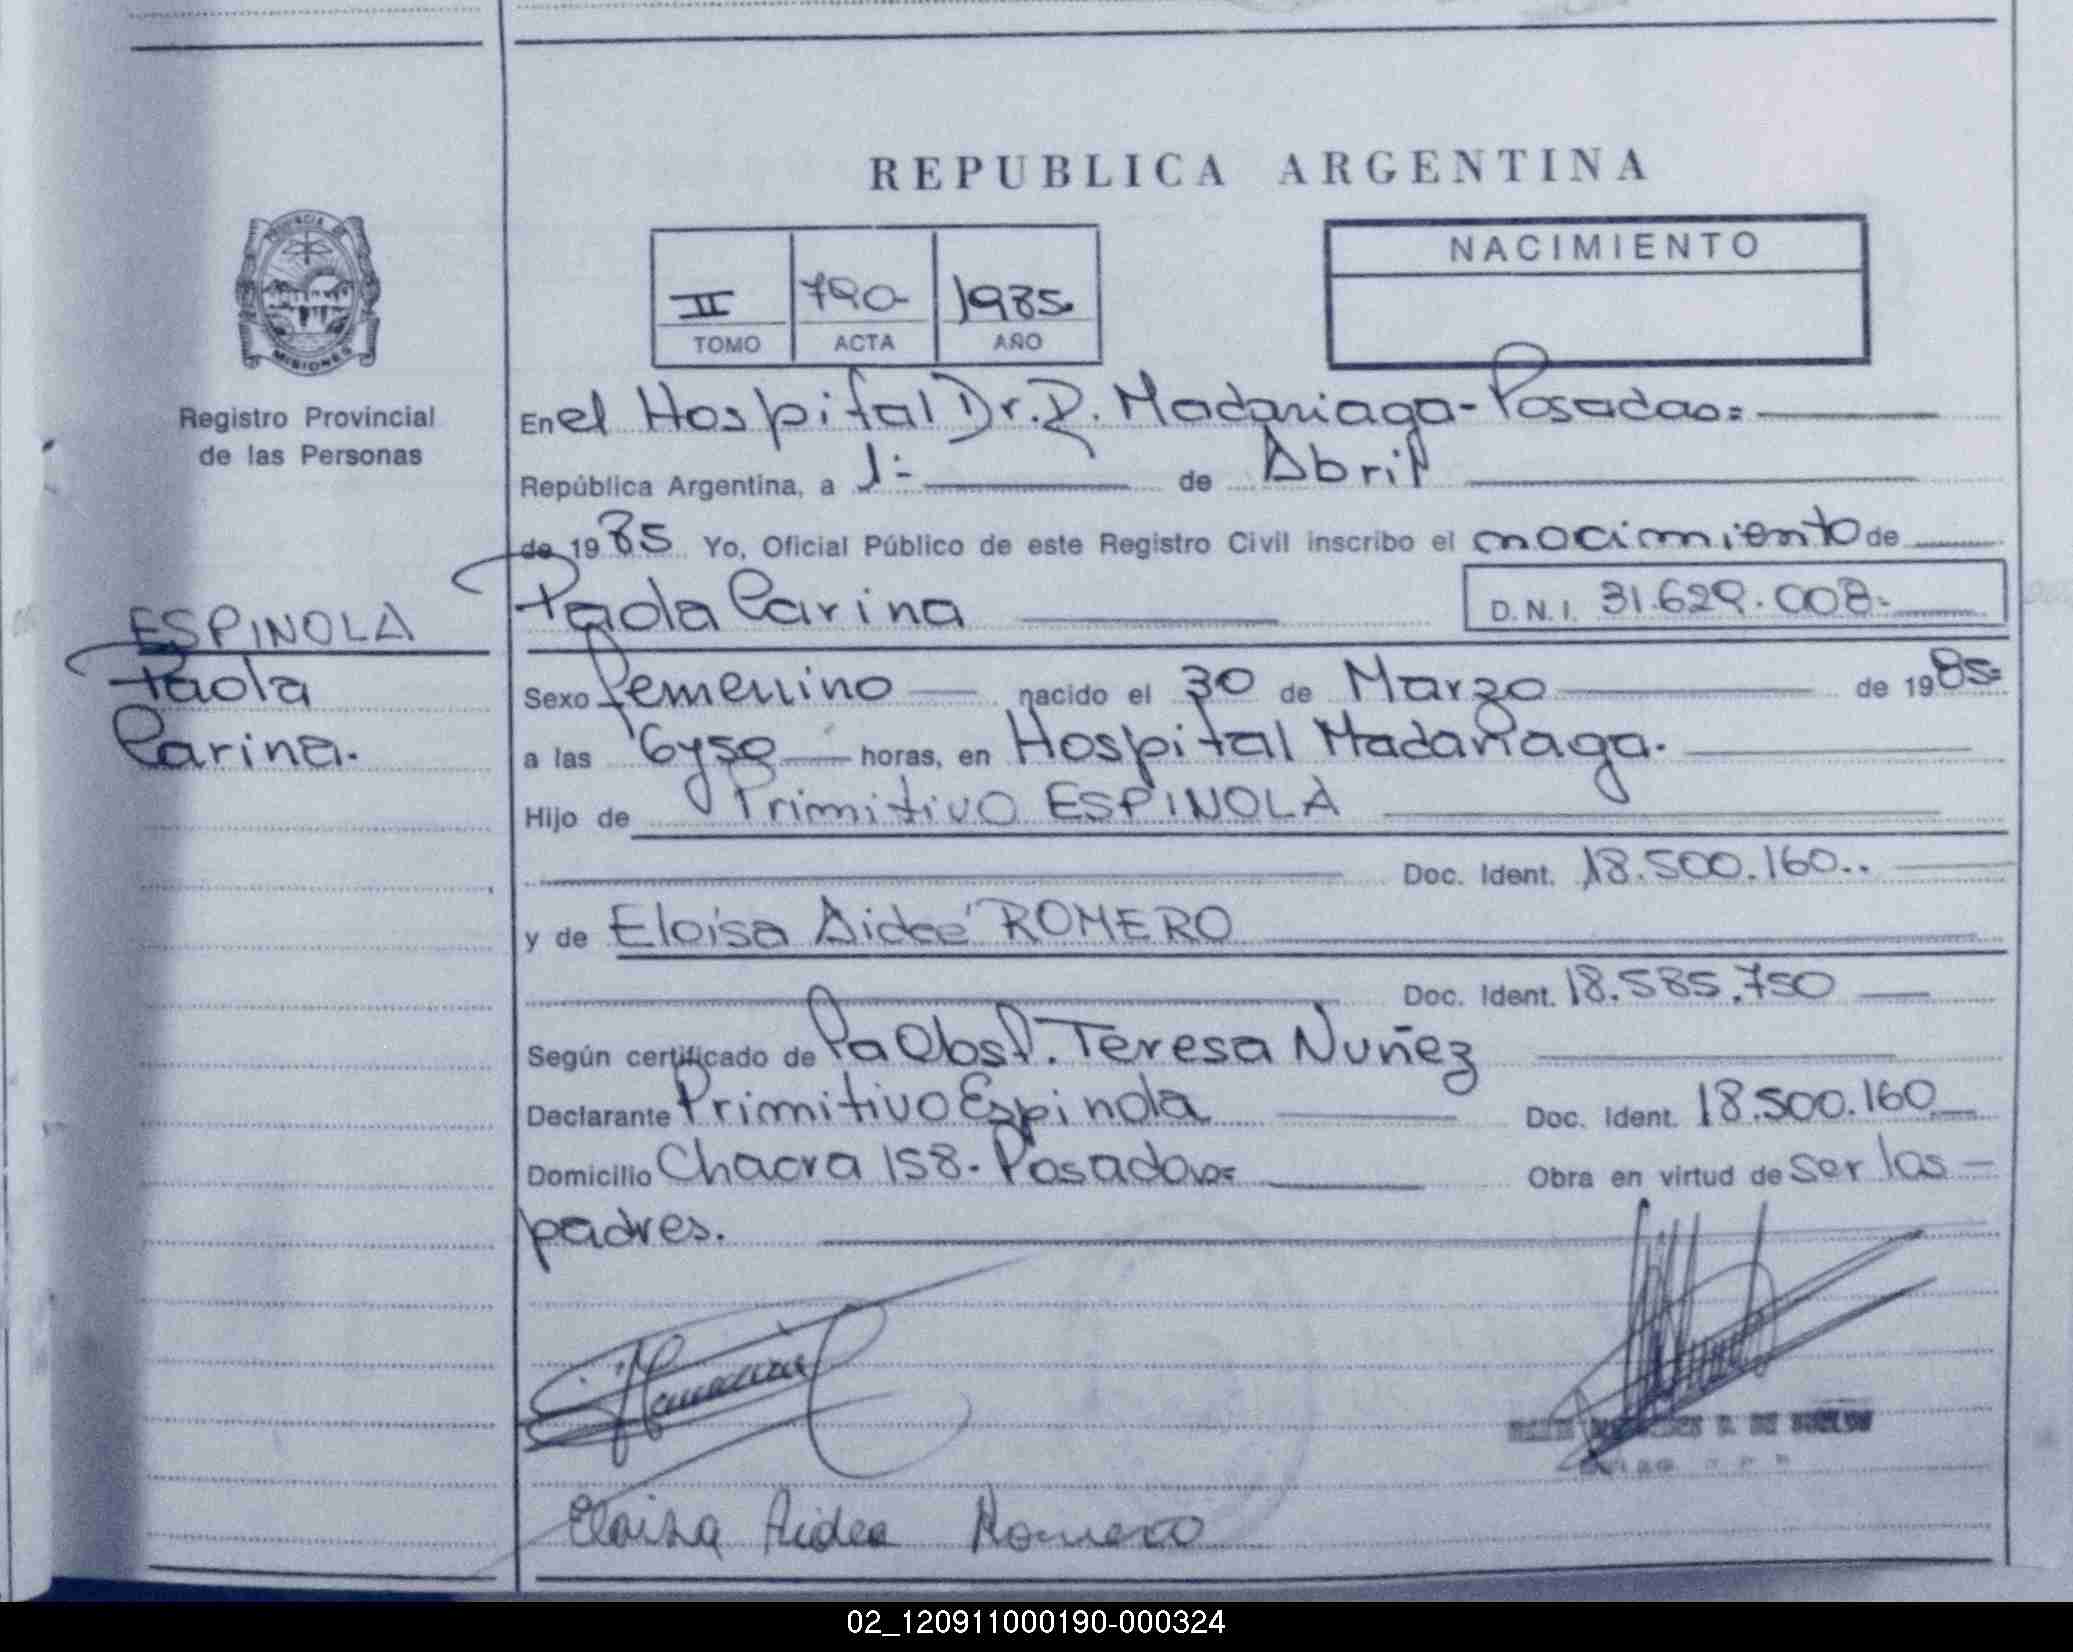 REPUBLICA ARGENTINA
PROVINCIA DE
MISIONES
Registro Provincial
de las Personas
II 790 1985
TOMO ACTA AÑO
NACIMIENTO
En el Hospital Dr. R. Madariaga - Posadas =
República Argentina, a 1- de Abril
de 1985 Yo, Oficial Público de este Registro Civil inscribo el nacimiento de
Paola Carina D.N.I. 31.629.008-
ESPINOLA
Paola
Carina.
Sexo Femenino nacido el 30 de Marzo de 1985=
a las 6y50 horas, en Hospital Madariaga.
Hijo de Primitivo ESPINOLA
Doc. Ident. 18.500.160..
y de Eloisa Aideé ROMERO
Doc. Ident. 18.585.750
Según certificado de la Obst. Teresa Nuñez
Declarante Primitivo Espinola Doc. Ident. 18.500.160
Domicilio Chacra 158- Posadas= Obra en virtud de ser los
padres.
DE
Eloisa Aidee Romero
02_120911000190-000324